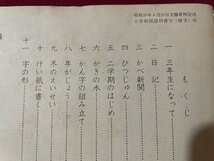 昭和39年4月20日文部省検定済
小学校国語科書写(硬筆)用
もくじ
一 三年生になって
二 日記
三 かべ新聞
四 ひっじゅん
五 二学期のはじめ
六 かきの木
七 かん字の組み立て
八 年がじょう
九 冬のえいせい
十 けい紙に書く
十一 字の形